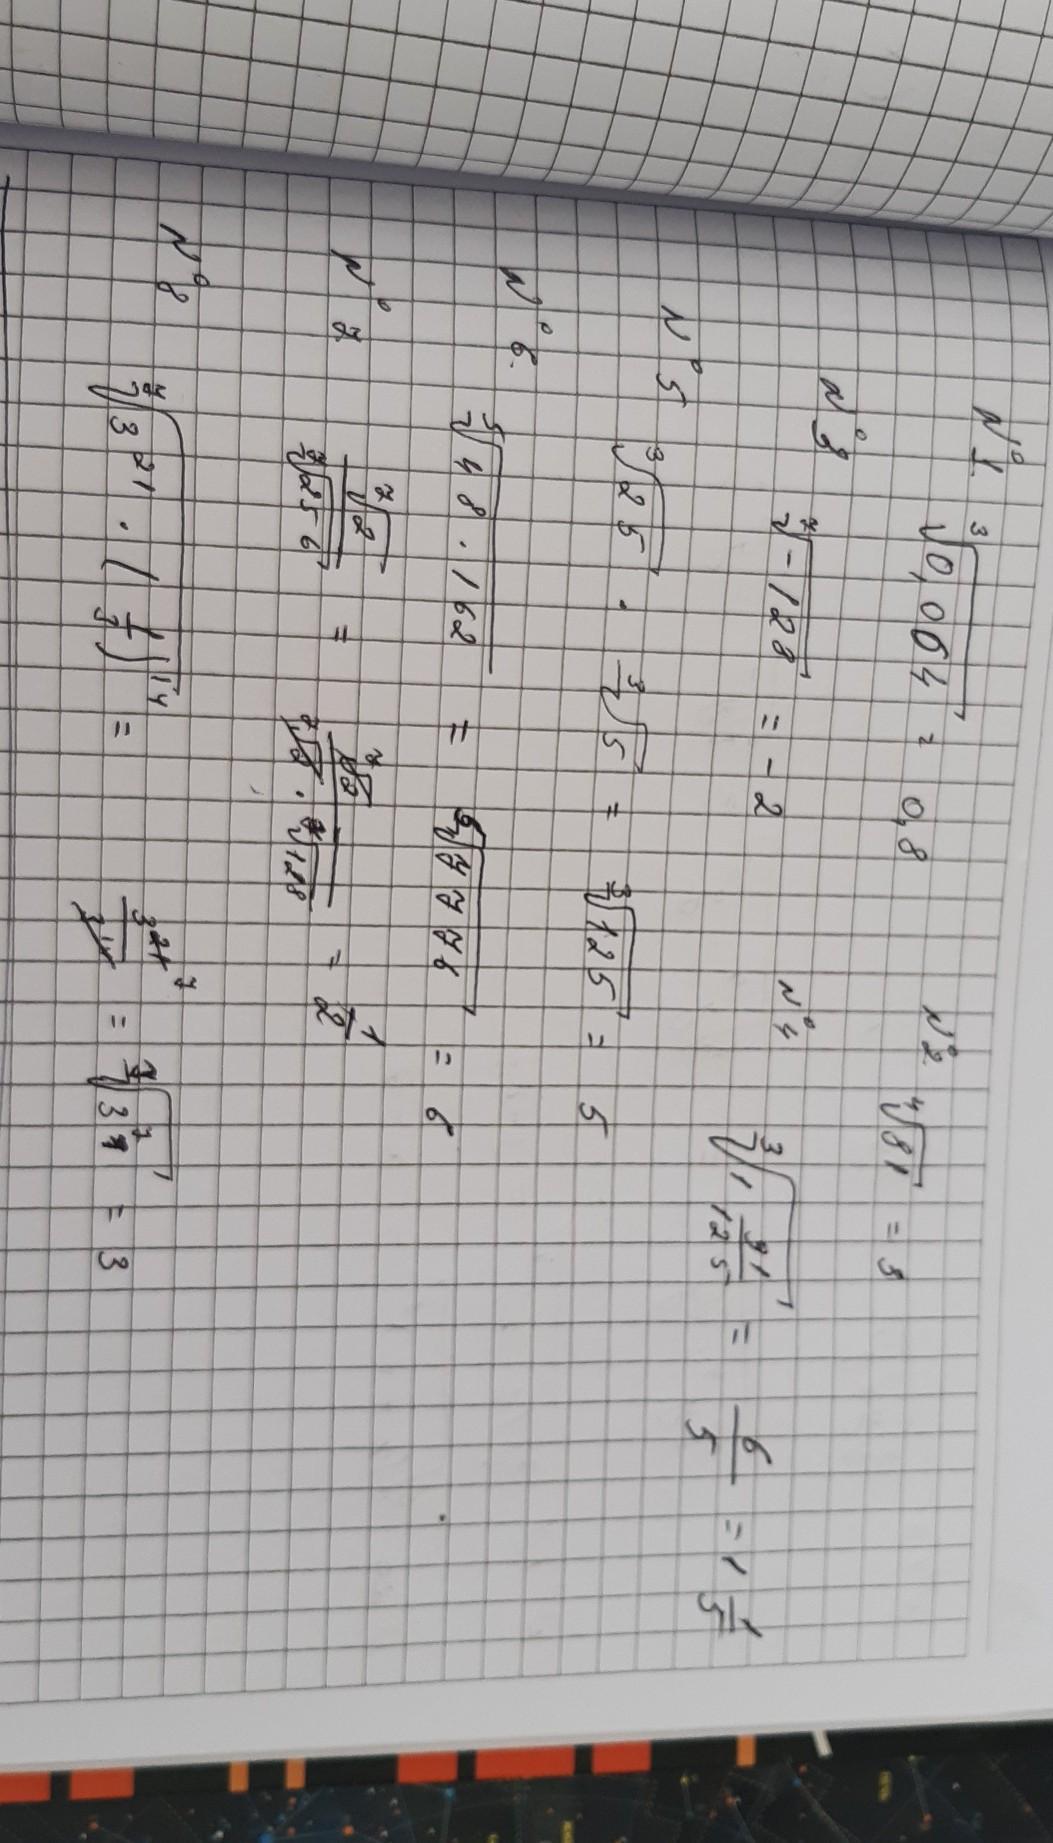 N°1. ∛0,064 = 0,8 N°2 ⁴√81 = 3
N°3 ⁷√-128 = -2 N°4 ∛(1 91/125) = 6/5 = 1 1/5
N°5 ∛25 · ∛5 = ∛125 = 5
N°6. ⁵√(48 · 162) = ⁵√7776 = 6
N°7 ⁷√2 / ⁷√256 = ⁷√2 / (⁷√2 · ⁷√128) = 1/2
N°8 ⁷√(3²¹ · (1/3)¹⁴) = 3²¹ ⁷ / 3¹⁴ = ⁷√3⁷ = 3